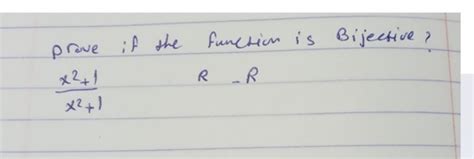 prove if the function is Bijective?
x²+1 R - R
x²+1